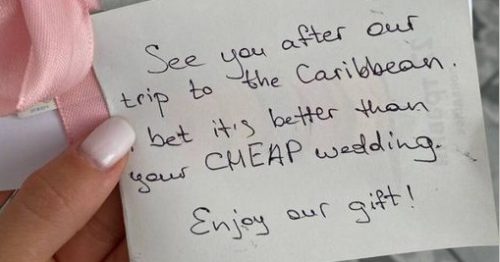 See you after our
trip to the Caribbean.
bet it's better than
your CHEAP wedding.
Enjoy our gift!